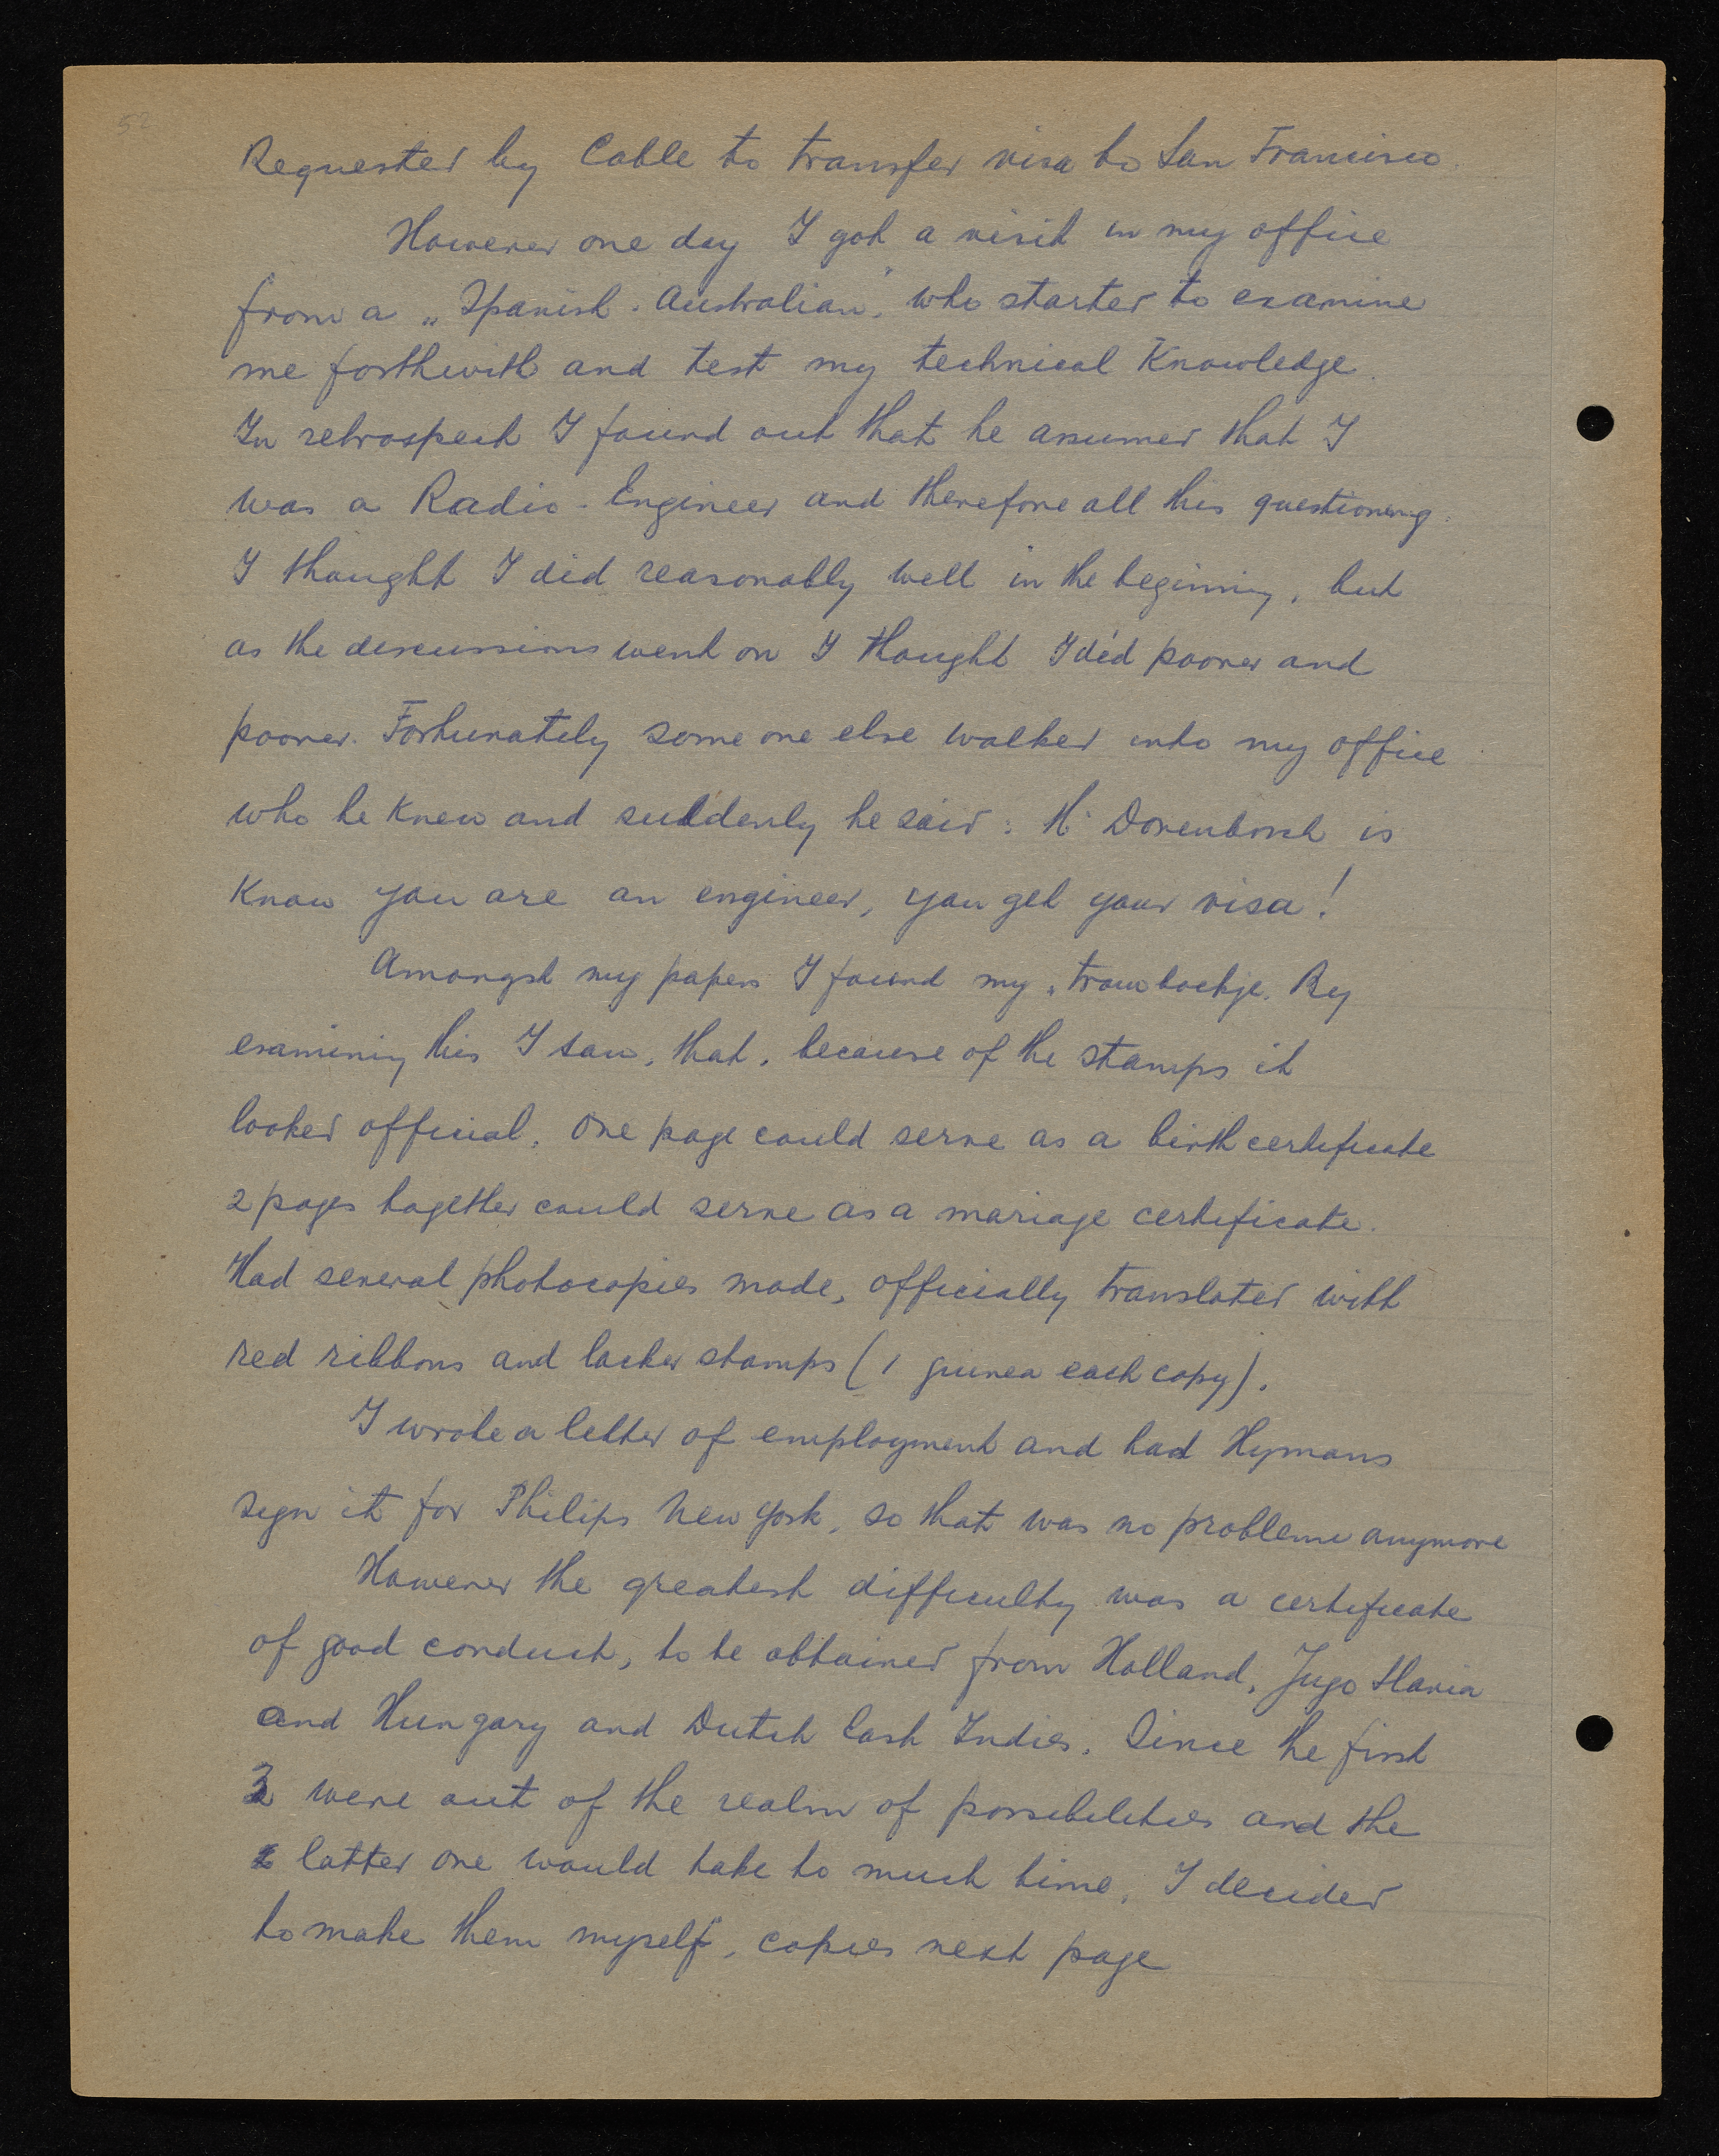 52
Requested by Cable to transfer visa to San Francisco.
However one day I got a visit in my office
from a „Spanish-Australian", who started to examine
me forthwith and test my technical Knowledge.
In retrospect I found out that he assumed that I
was a Radio-Engineer and therefore all his questioning.
I thought I did reasonably well in the beginning, but
as the discussions went on I thought I did poorer and
poorer. Fortunately some one else walked into my office
who he Knew and suddenly he said: Mr Dorenbosch is
Know you are an engineer, you get your visa!
Amongst my papers I found my „trouwboekje. By
examining this I saw, that, because of the stamps it
looked official. One page could serve as a birth certificate
2 pages together could serve as a mariage certificate.
Had several photocopies made, officially translated with
red ribbons and lacker stamps (1 guinea each copy).
I wrote a letter of employment and had Hymans
sign it for Philips New York, so that was no probleme anymore
However the greatest difficulty was a certificate
of good conduct, to be obtained from Holland, Jugo Slavia
and Hungary and Dutch East Indies. Since the first
3 were out of the realm of possibilities and the
latter one would take to much time, I decided
to make them myself, copies next page